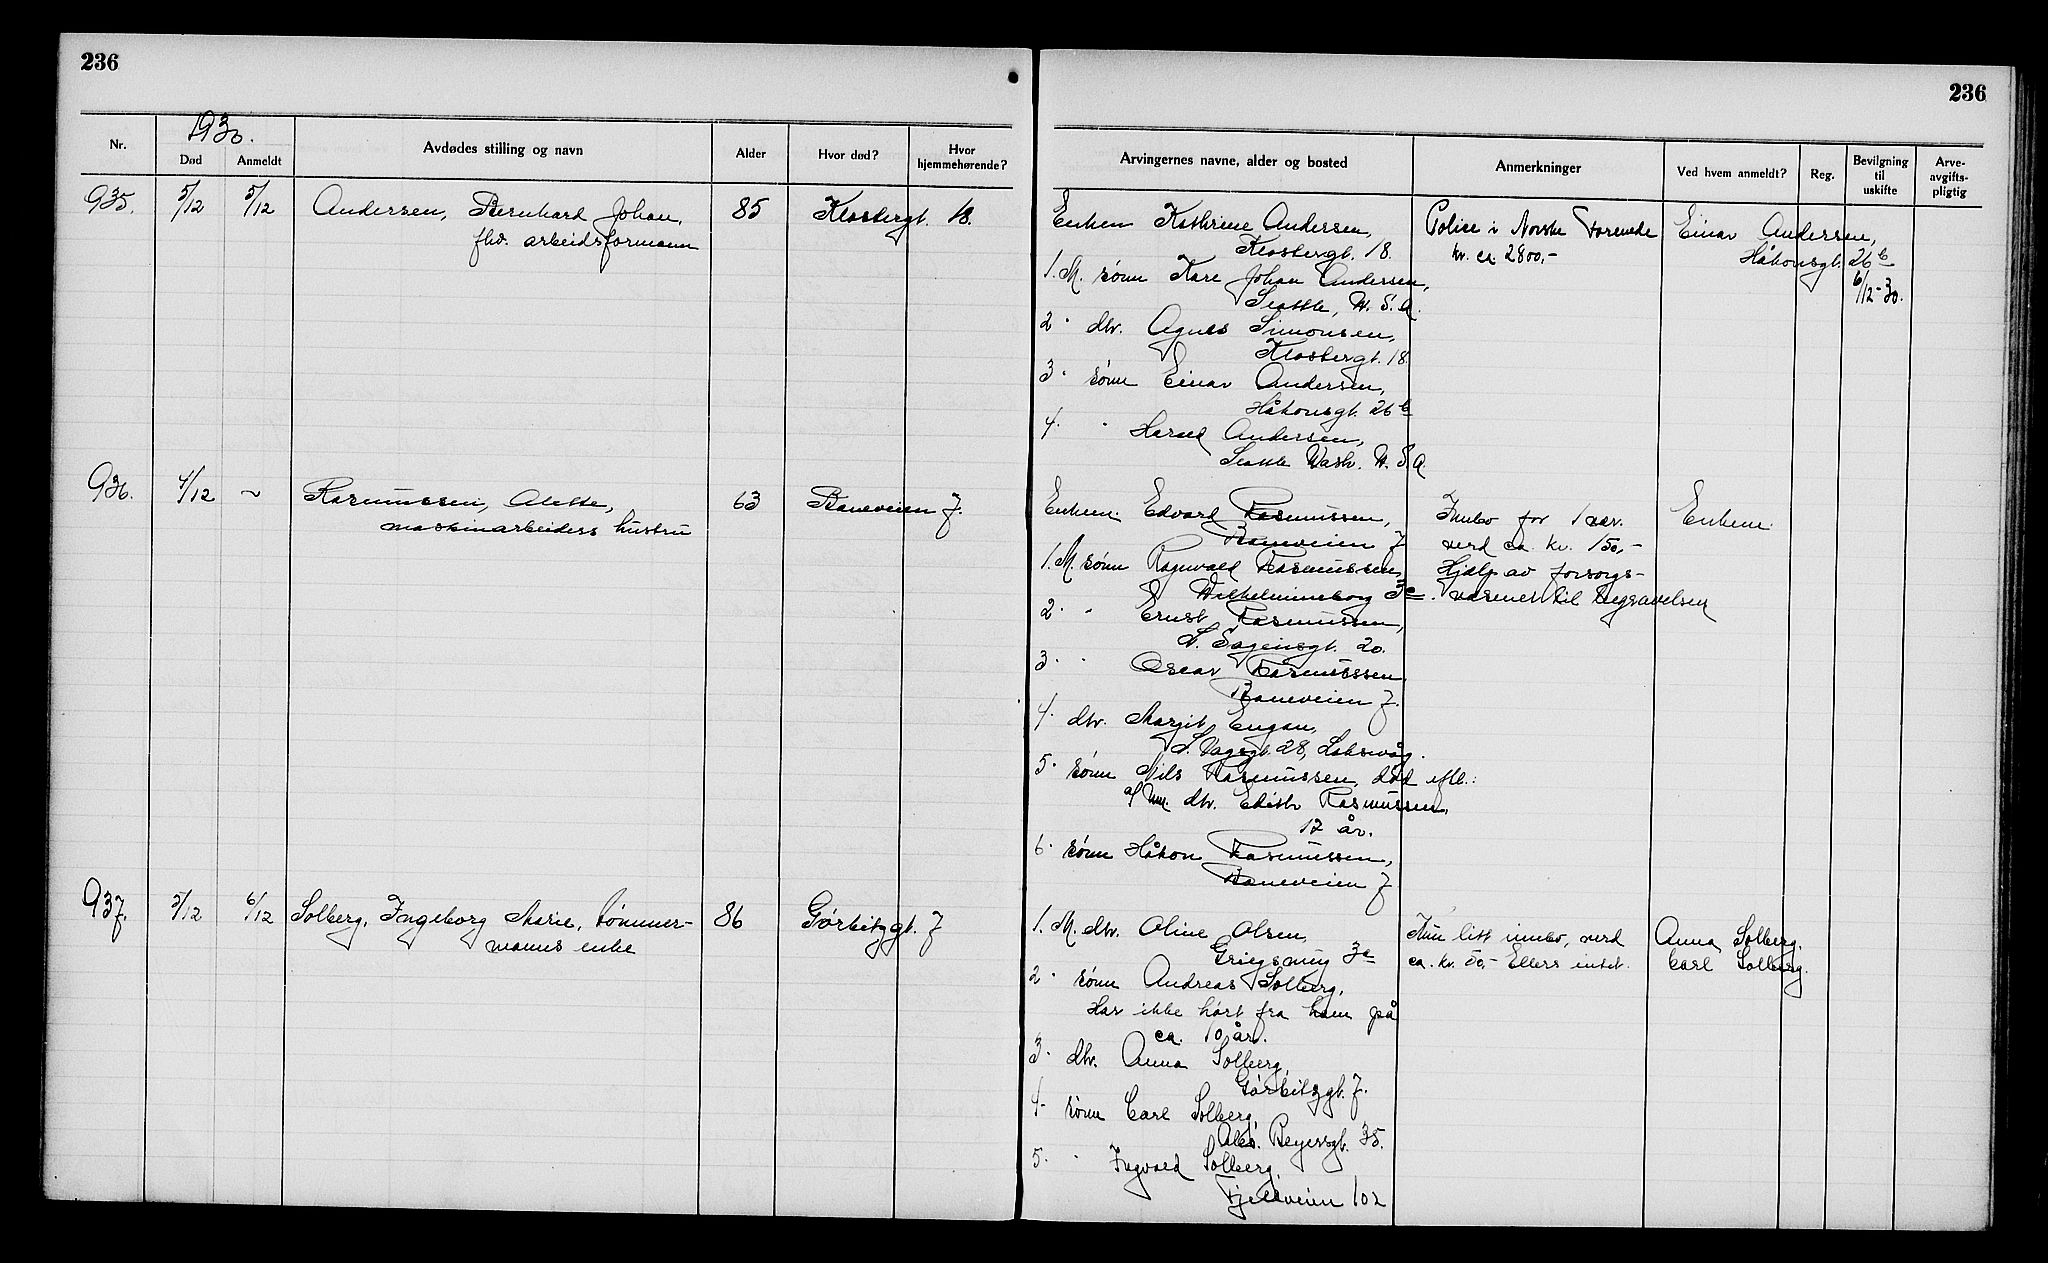 236
236
1930.
Nr.
Død
Anmeldt
Avdødes stilling og navn
Alder
Hvor død?
Hvor hjemmehørende?
Arvingernes navne, alder og bosted
Anmerkninger
Ved hvem anmeldt?
Reg.
Bevilgning til uskifte
Arve-avgifts-pligtig
935. 5/12 5/12 Andersen, Bernhard Johan, 85 Klostergt. 18.
fhv. arbeidsformann
Enken Kathrine Andersen,
Klostergt. 18.
1. M. sønn Karl Johan Andersen,
Seattle, U. S. A.
2 " dtr. Agnes Simonsen,
Klostergt. 18.
3 " sønn Einar Andersen,
Håkonsgt. 26 b
4. " Harald Andersen,
Seattle Wash. U. S. A.
Police i Norske Forenede
kr. ca. 2800,-
Einar Andersen,
Håkonsgt. 26 b
6/12-30.
936. 4/12 ~ Rasmussen, Alette, 63 Baneveien 7.
maskinarbeiders hustru
Enkem. Edvard Rasmussen,
Baneveien 7
1. M. sønn Ragnvald Rasmussen,
Wilhelmineborg 3c.
2. " Ernst Rasmussen,
L. Sagensgt. 20.
3. " Oscar Rasmussen
Baneveien 7.
4. dtr. Margit Engan,
28, Laksevåg.
5. sønn Nils Rasmussen, død eftl.:
a/ Um. dtr. Edith Rasmussen,
12 år.
6. sønn Håkon Rasmussen,
Baneveien 7
Innbo for 1 vær.
verd ca. kr. 150,-
Hjælp av forsorgs-
vesenet til begravelsen
Enkem.
937. 5/12 6/12 Solberg, Ingeborg Marie, tømmer- 86 Gørbitzgt. 7
manns enke
1. M. dtr. Oline Olsen,
Griegsmug 3c
2 " sønn Andreas Solberg,
Har ikke hørt fra ham på
ca. 10 år.
3. dtr. Anna Solberg,
Gørbitzgt. 7.
4- sønn Carl Solberg,
Absl. Beyersgt. 35.
5. " Ingvald Solberg
Fjellveien 102
Kun litt innbo, verd
ca. kr. 50,- Ellers intet.
Anna Solberg.
Carl Solberg.